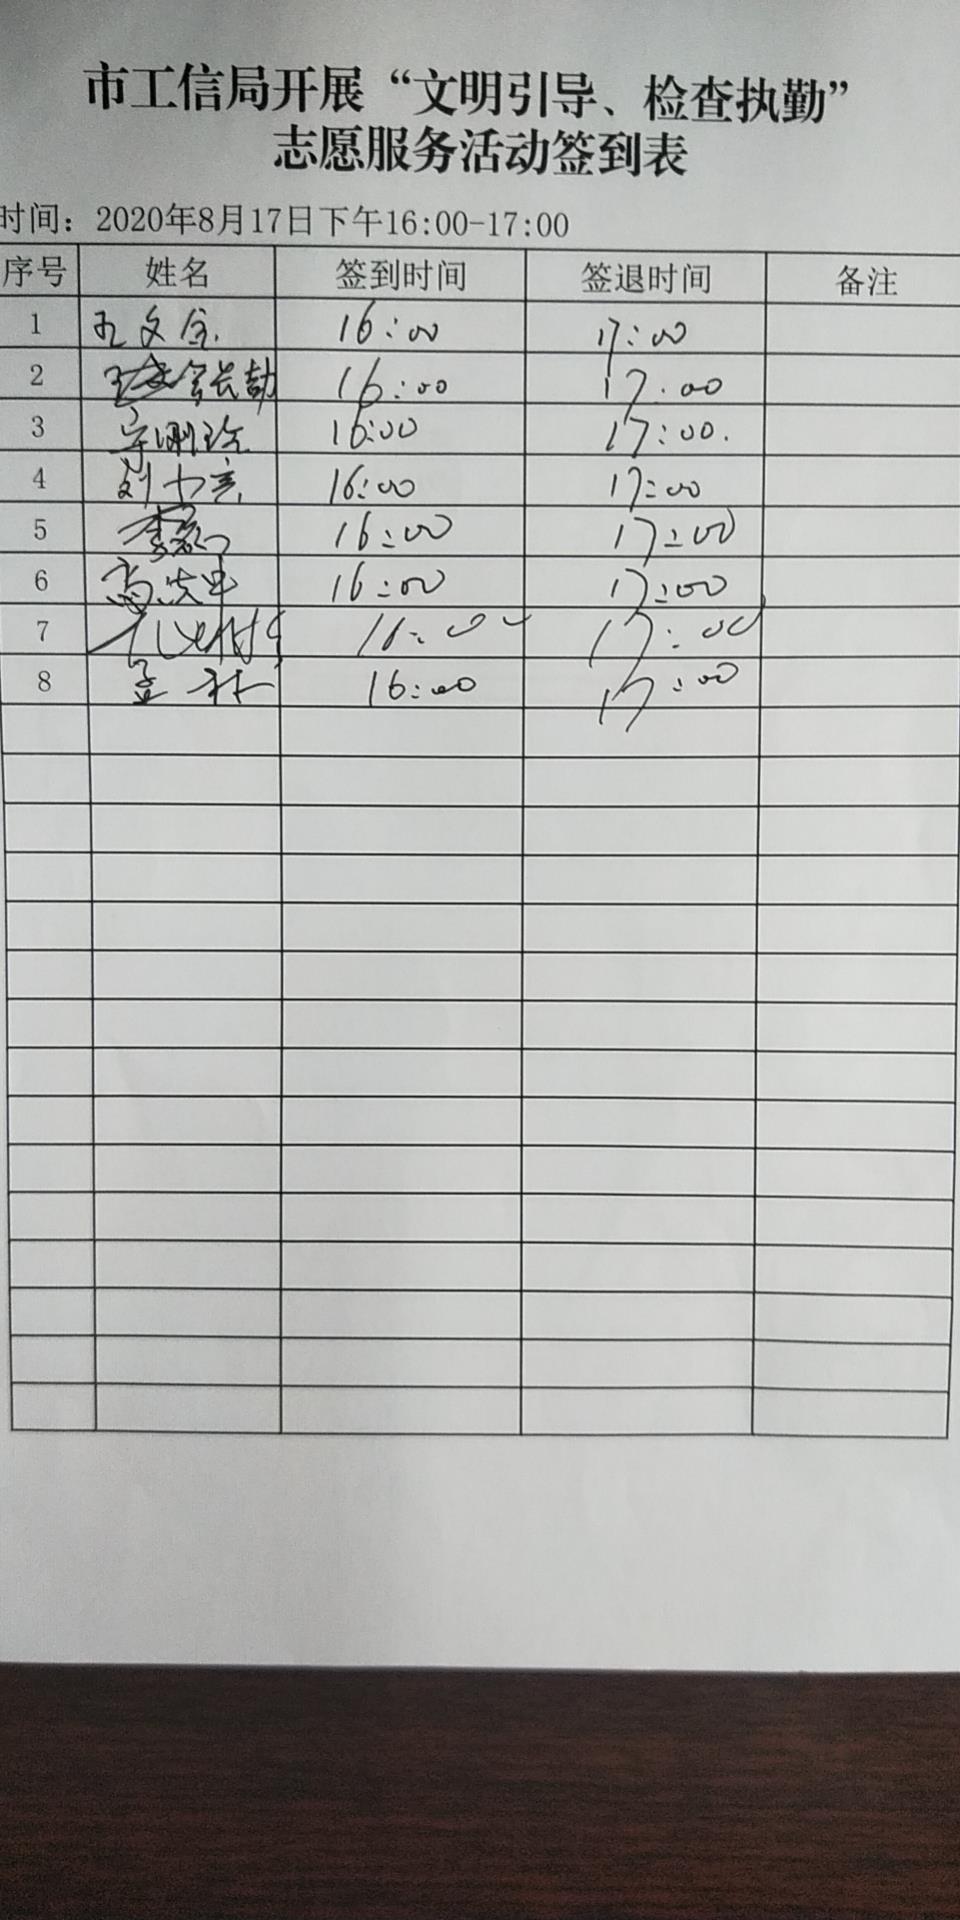 市工信局开展“文明引导、检查执勤”
志愿服务活动签到表
时间：2020年8月17日下午16:00-17:00
序号 姓名 签到时间 签退时间 备注
1 16:00 17:00
2 16:00 17:00
3 16:00 17:00.
4 16:00 17:00
5 16:00 17:00
6 16:00 17:00
7 16:00 17:00
8 16:00 17:00